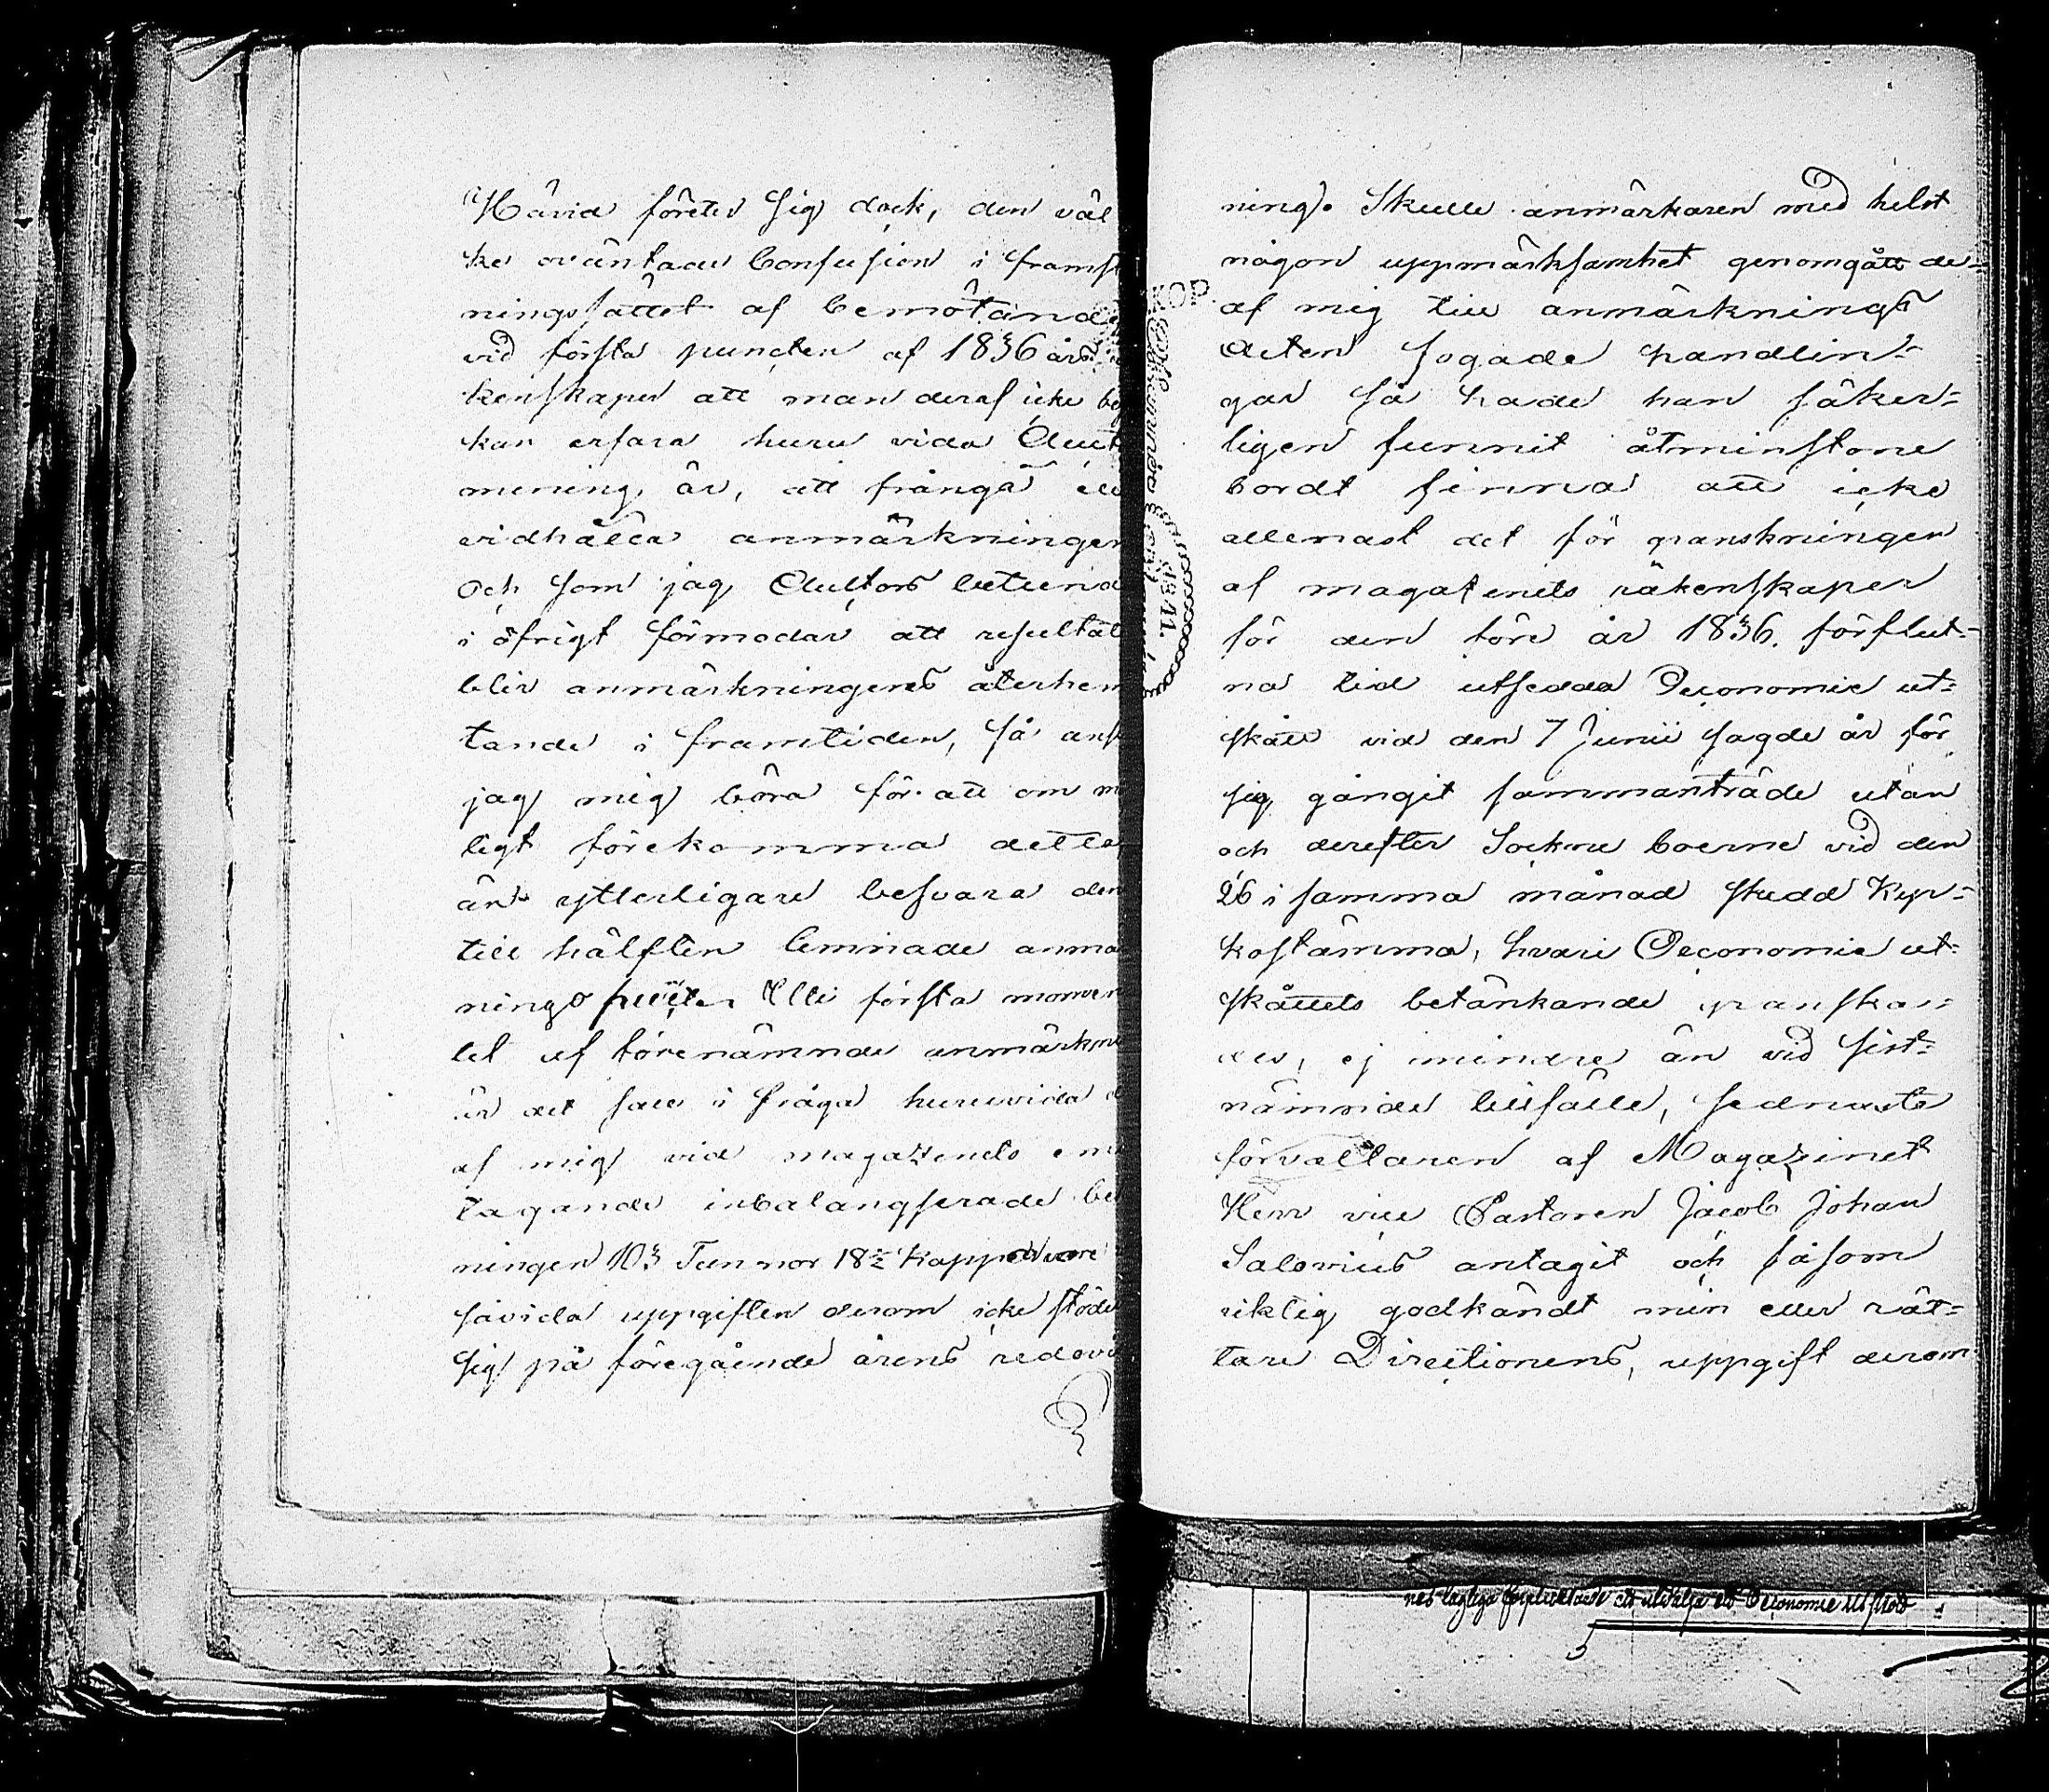 Härvid företer sig dock, den väl
ke oväntade Confusion i framst
ningssättet af bemötande
vid första puncten af 1836 års
kenskaper att man deraf icke be
kan erfara huru vida Auct
mening, är, att frångå ell
vidhålla anmärkningen
och som jag Auctors
i öfrigt förmodar att resultat
blir anmärkningens återhem
tande i framtiden, så ans
jag mig böra för att om m
ligt förekomma detta
än ytterligare besvara den
till hälften lemnade anmä
nings första momen
tet af förenämnde anmärkni
är det fall i fråga huruvida d
af mig vid magazinets em
tagande inbalangserade be
ningen 103 Tunnor 18½ Kappar vore
såvida uppgiften derom icke stöde
sig på föregående årens redovis
ning. Skulle anmärkaren med helst
någon uppmärksamhet genomgått de=
af mig till anmärknings
Acten fogade handlin=
gar så hade han säker=
ligen funnit åtminstone
bordt finna att icke
allenast det för granskningen
af magazinets räkenskaper
för den före år 1836. förflut=
na tid utsedda Oeconomie ut=
skått vid den 7 Junii sagde år för
sig gångit sammanträde utan
och derefter Sockne boerne vid den
26 i samma månad skedd Kyr=
kostämma, hvari Oeconomie ut=
skåttets betänkande granska=
des, ej mindre än vid sist=
nämnide tillfälle, sednaste
förvaltaren af Magazinet
Herr vice Pastoren Jacob Johan
Salovius antagit och såsom
riktig godkändt min eller rät=
tare Directionens, uppgift derom
KOP.
1841.
nes lagliga att utvälja ett Oeconomie Utskott